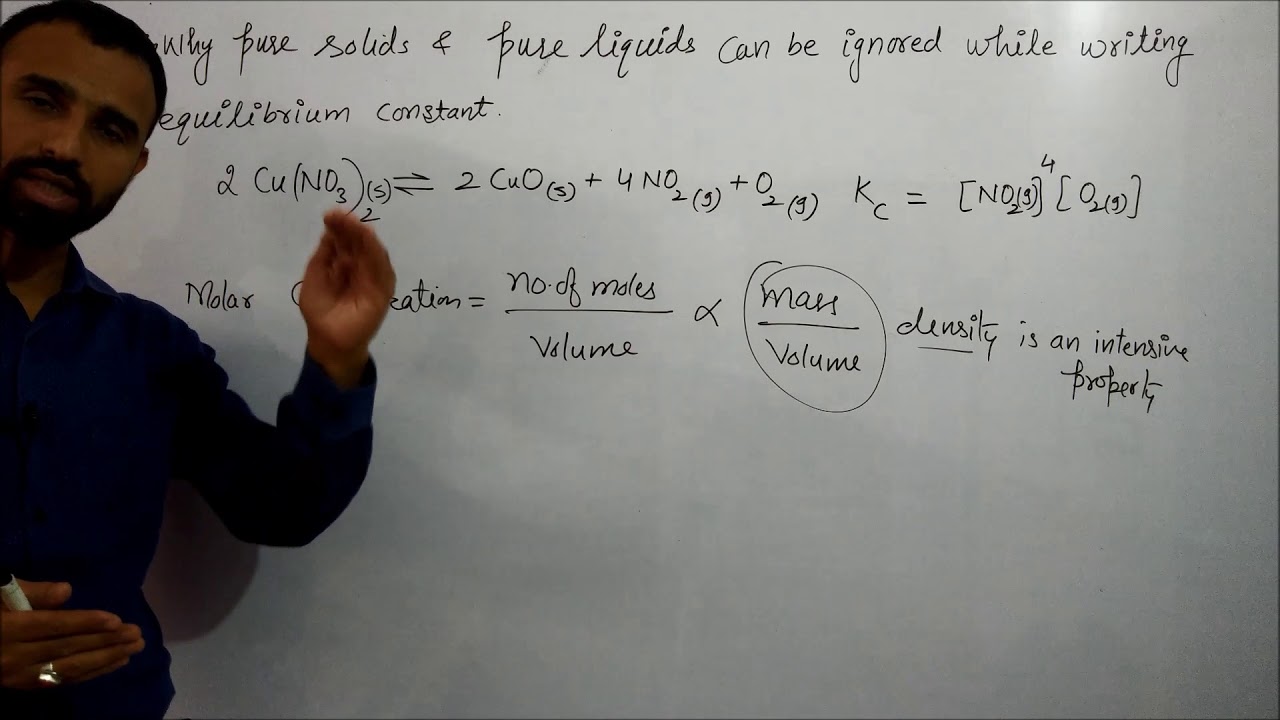 Why pure solids & pure liquids can be ignored while writing
equilibrium constant.
2 Cu(NO₃)₂(s) ⇌ 2 CuO(s) + 4 NO₂(g) + O₂(g) K_C = [NO₂(g)]⁴ [O₂(g)]
Molar = no. of moles / Volume ∝ mass / Volume density is an intensive
property